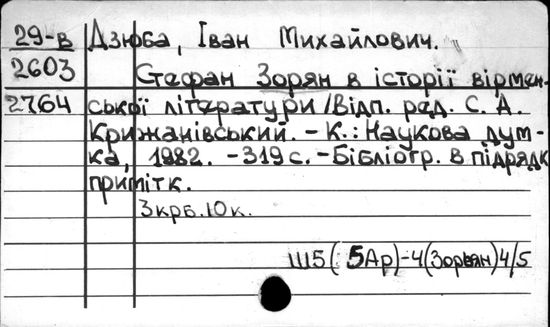 29-в Дзюба, Іван Михайлович.
2603 Стефан Зорян в історії вірмен-
2764 ської літератури/Відп. ред. С. А.
Крижанівський. – К.: Наукова дум-
ка, 1982. – 319 с. – Бібліогр. в підрядк
примітк.
3крб.10к.
Ш5(5Ар)-4(Зорян)4/5